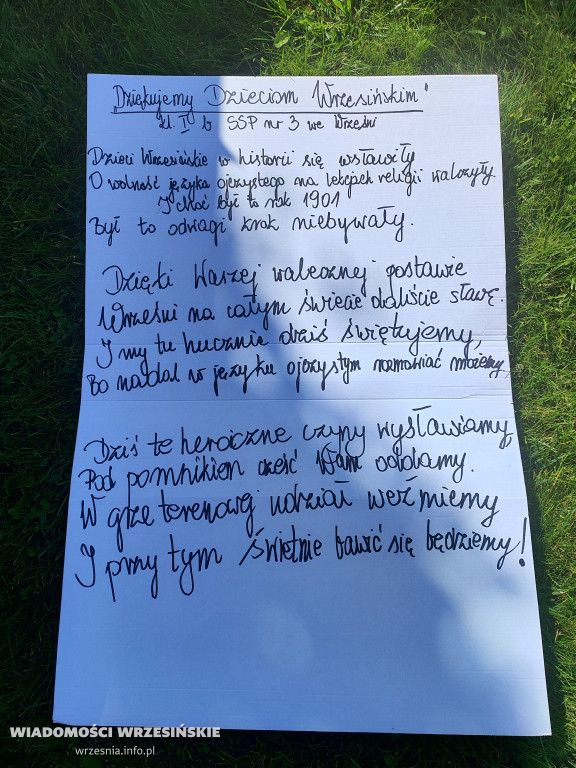 „Dziękujemy Dzieciom Wrzesińskim"
kl. II b SSP nr 3 we Wrześni
Dzieci Wrzesińskie w historii się wsławiły
O wolność języka ojczystego na lekcjach religii walczyły.
I choć był to rok 1901
Był to odwagi krok niebywały.
Dzięki Waszej walecznej postawie
Wrześni na całym świecie daliście sławę.
I my tu hucznie dziś świętujemy,
Bo nadal w języku ojczystym rozmawiać możemy,
Dziś te heroiczne czyny wysławiamy,
Pod pomnikiem cześć Wam oddamy.
W grze terenowej udział weźmiemy
I przy tym świetnie bawić się będziemy!
WIADOMOŚCI WRZESIŃSKIE
wrzesnia.info.pl